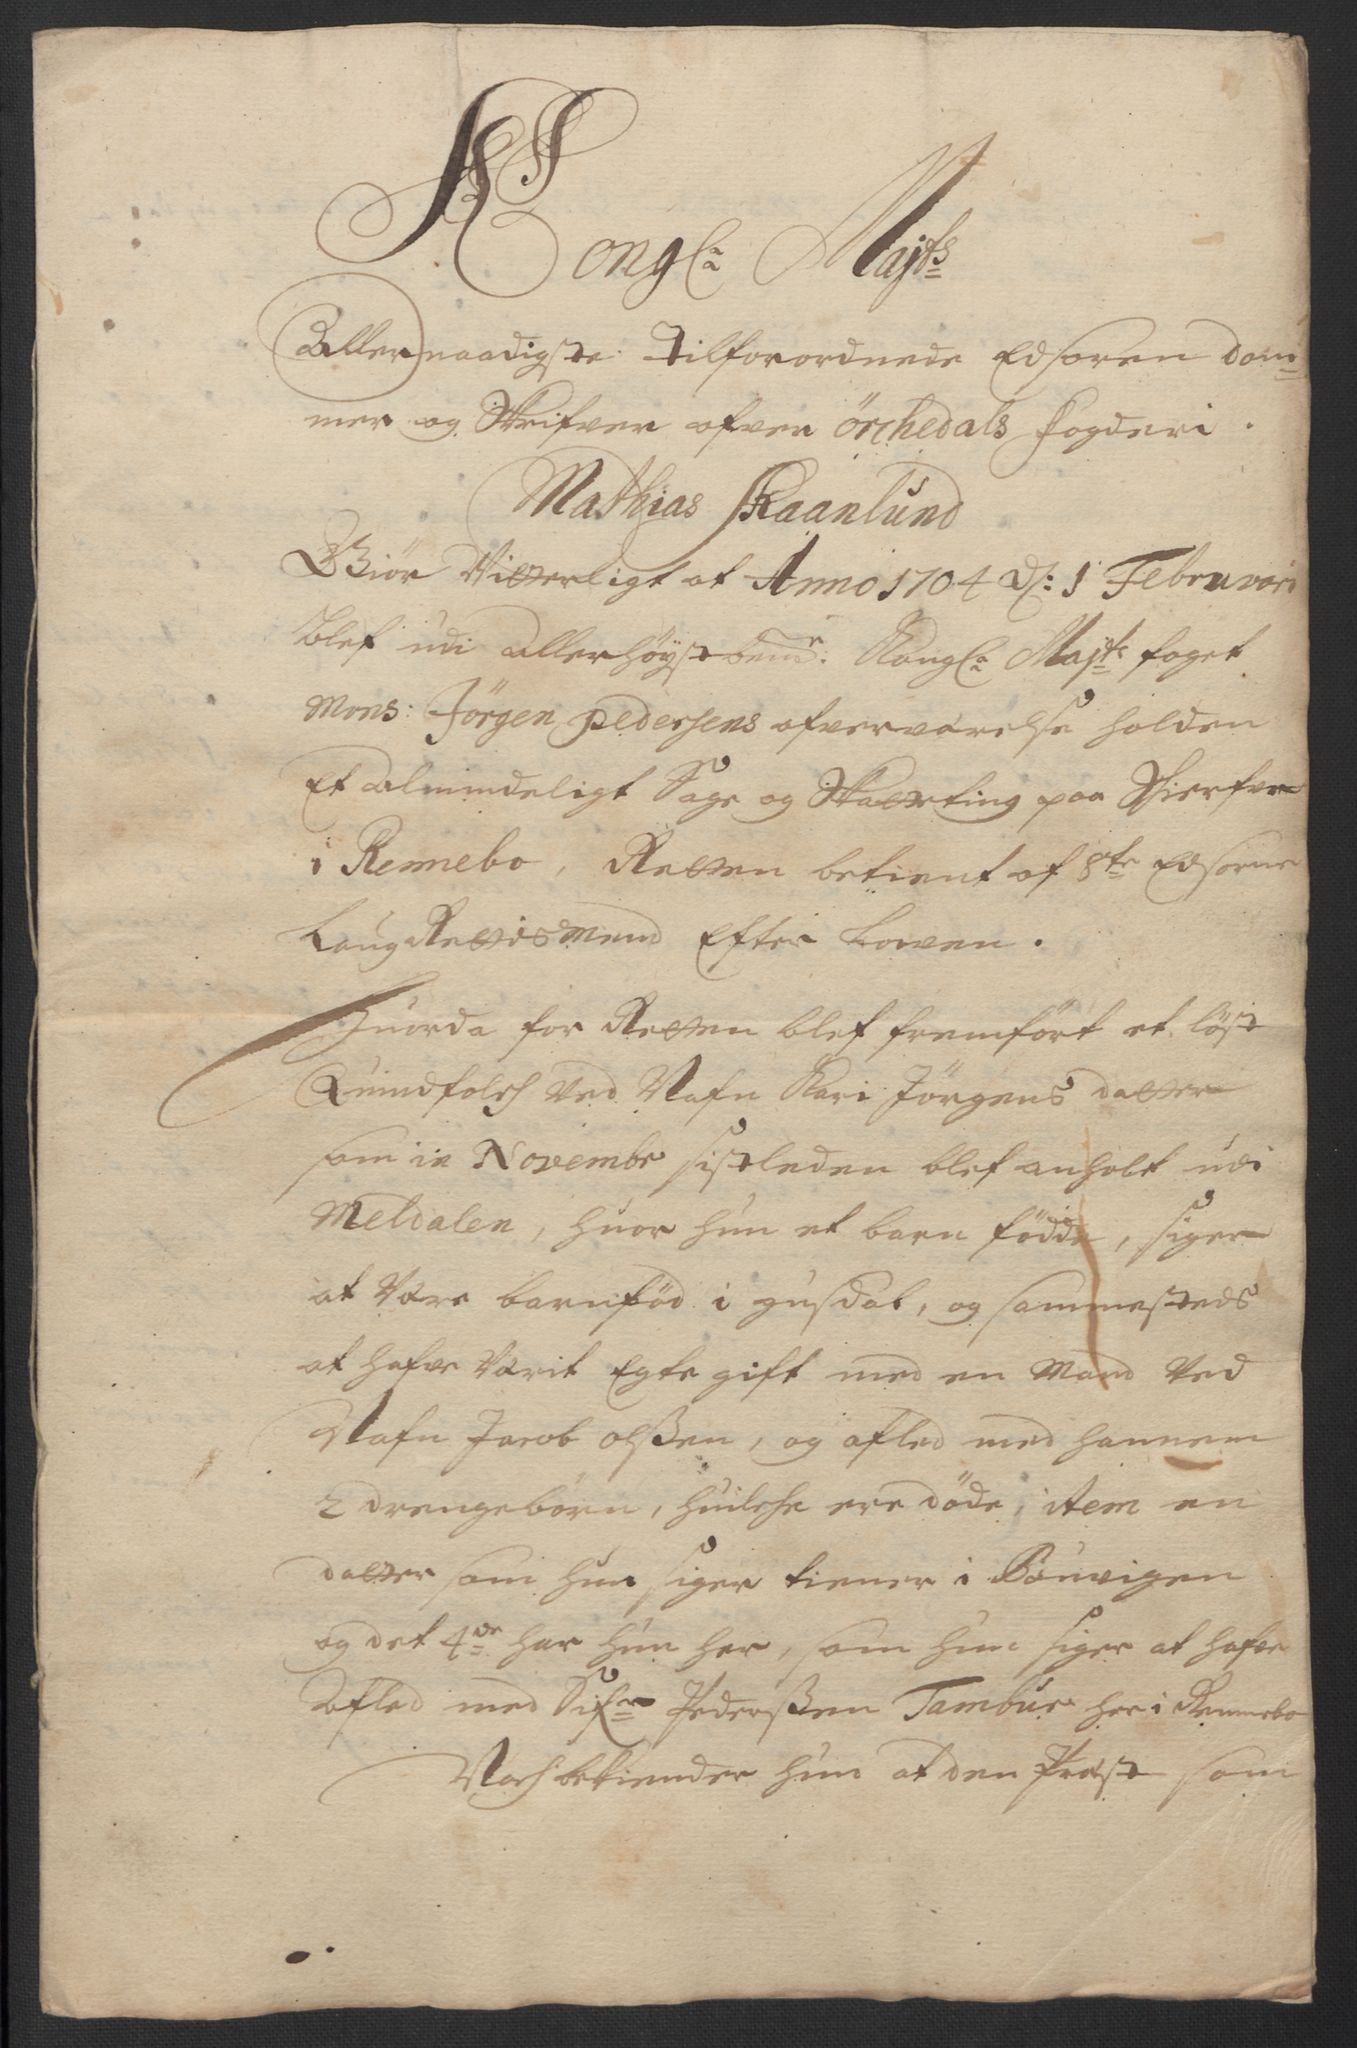 Kongl: Majts
Allernaadigste Tilforordnede Edsoren dom=
mer og Skrifver ofver Örchedals fogderi.
Mathias Skaanlund
Giör Vitterligt at Anno 1704 d: 1 Februvari
blef udi allerhöystbemr: Kongl: Majts foget
Mons: Jörgen Pedersens ofververelse holden
Et almindeligt Sage og Skatteting paa Skierfve
i Rennebo, Retten betient af 8te Edsorne
LaugRettismend Efter Lowen.
Huorda for Retten blef fremfört et löst
Quindfolch ved Nafn Kari Jörgens datter
som in Novembr sistleden blef anholt udi
Meldalen, huor hun et barn födde, siger
at Være barnföd i gusdal, og sammesteds
at hafve Varit Egte gift med en Mand ved
Nafn Jacob olßen, og afled med hannem
2 drengebörn, huilche ere döde, item en
datter som hun siger tiener i Börwigen
og det 4de har hun her, som hun siger at hafve
afled med Sifr Pederßen Tambur her i Rennebo
Noch bekiender hun at den Præst som